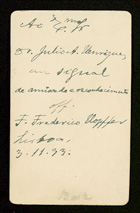 Ao Exmo
Sr. Dr. Julio A. Henriques,
em signal
de amizade e reconhecimento
off.
F. Frederico
Lisboa,
3.11.93.